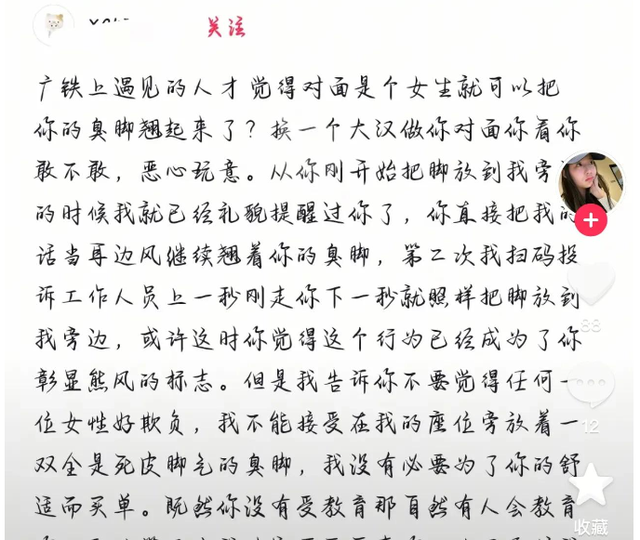 关注
广铁上遇见的人才觉得对面是个女生就可以把
你的臭脚翘起来了？换一个大汉做你对面你看你
敢不敢，恶心玩意。从你刚开始把脚放到我旁
的时候我就已经礼貌提醒过你了，你直接把我的
话当耳边风继续翘着你的臭脚，第二次我扫码投
诉工作人员上一秒刚走你下一秒就照样把脚放到
我旁边，或许这时你觉得这个行为已经成为了你
彰显熊风的标志。但是我告诉你不要觉得任何一
位女性好欺负，我不能接受在我的座位旁放着一
双全是死皮脚气的臭脚，我没有必要为了你的舒
适而买单。既然你没有受教育那自然有人会教育
88
12
收藏